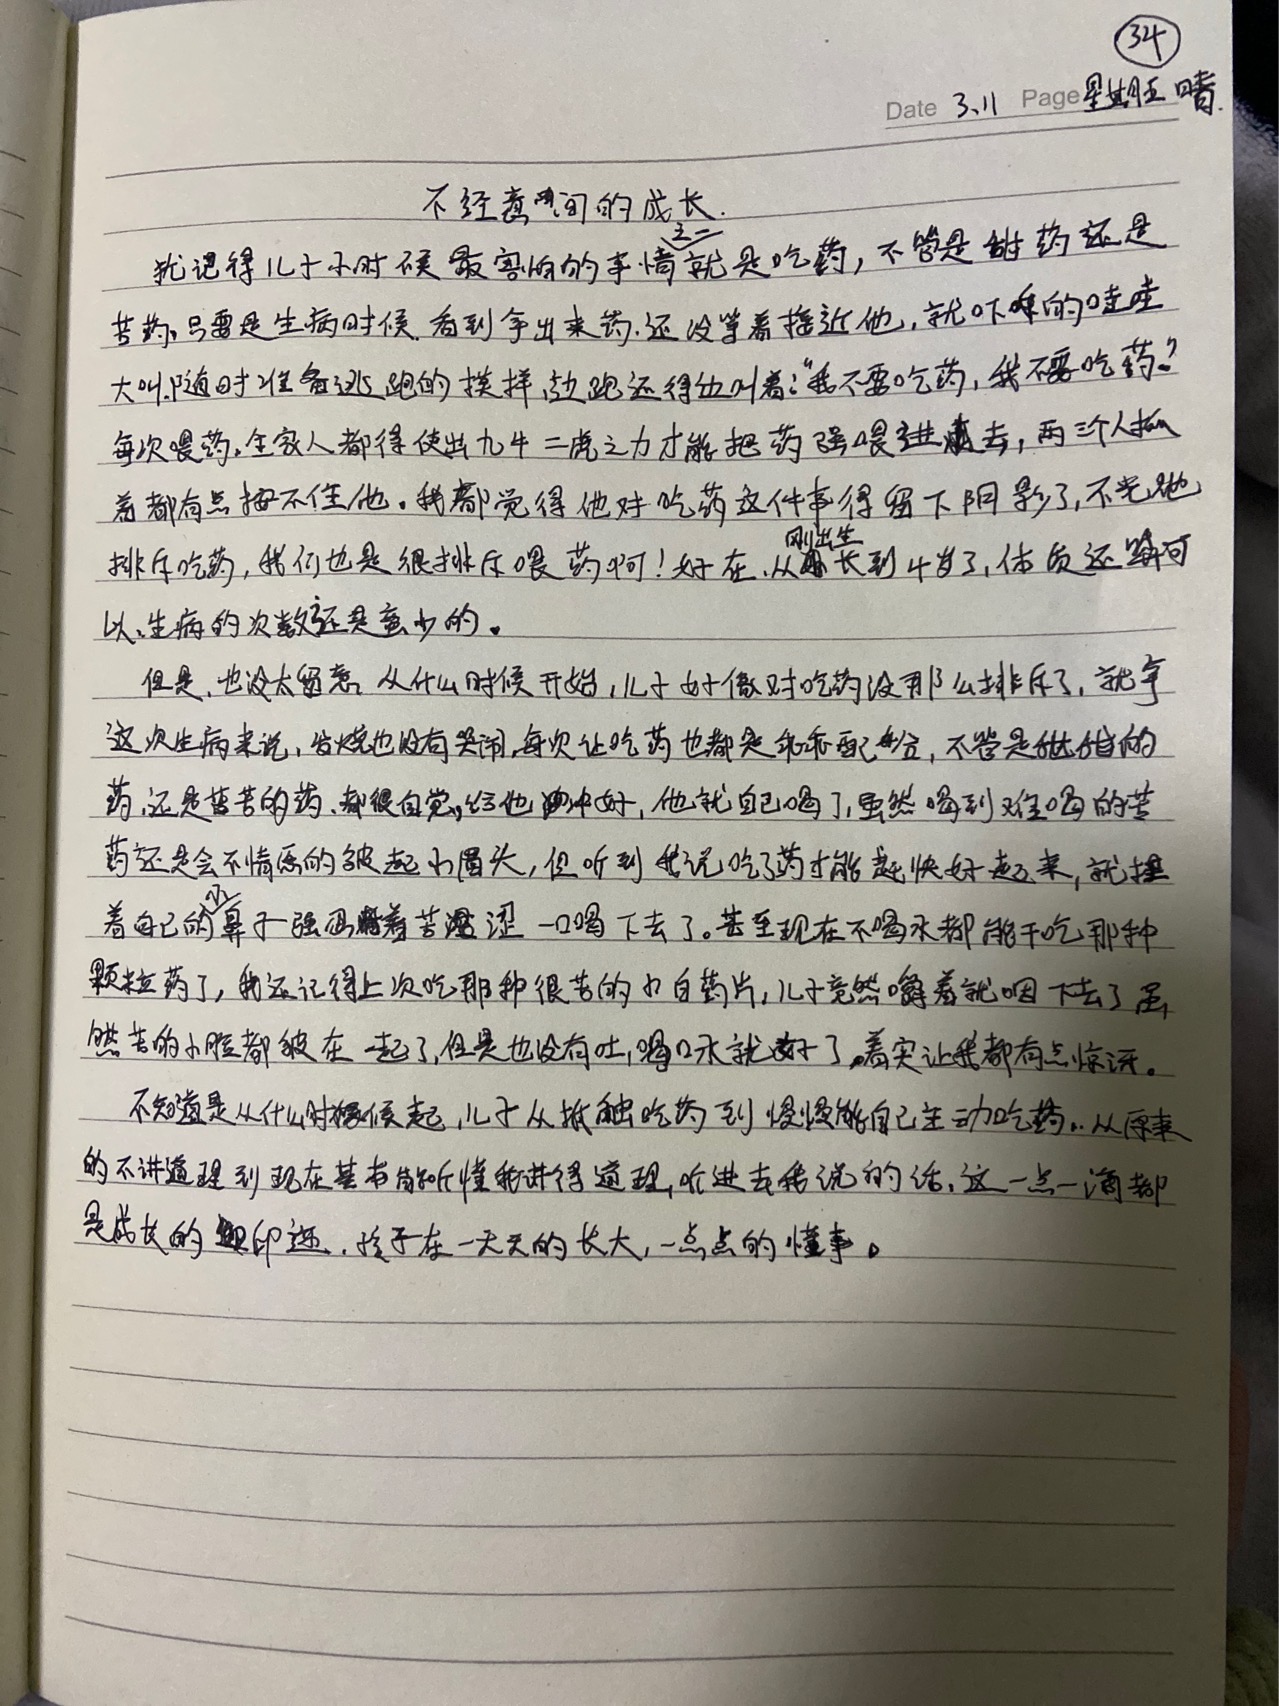 34
Date 3.11 Page 星期五 晴.
不经意间的成长.
犹记得儿子小时候最害怕的事情之一就是吃药，不管是甜药还是
苦药，只要是生病时候，看到拿出来药，还没等着接近他，就吓的哇哇
大叫，随时准备逃跑的模样，边跑还得边叫着：“我不要吃药，我不要吃药？”
每次喂药，全家人都得使出九牛二虎之力才能把药强喂进去，两三个人抓
着都有点按不住他。我都觉得他对吃药这件事得留下阴影了，不光他
排斥吃药，我们也是很排斥喂药啊！好在，从刚出生长到4岁了，体质还可
以，生病的次数还是蛮少的。
但是，也没太留意，从什么时候开始，儿子好像对吃药没那么排斥了，就拿
这次生病来说，发烧也没有哭闹，每次让吃药也都是乖乖配合，不管是甜甜的
药，还是苦苦的药，都很自觉，给他冲好，他就自己喝了，虽然喝到难喝的苦
药还是会不情愿的皱起小眉头，但听到我说吃了药才能赶快好起来，就捏
着自己的小鼻子强忍着苦涩一口喝下去了。甚至现在不喝水都能干吃那种
颗粒药了，我还记得上次吃那种很苦的小白药片，儿子竟然嚼着就咽下去了虽
然苦的小脸都皱在一起了，但是也没有吐，喝口水就好了，着实让我都有点惊讶。
不知道是从什么时候起，儿子从抵触吃药到慢慢能自己主动吃药，从原来
的不讲道理到现在基本能听懂我讲得道理，听进去我说的话，这一点一滴都
是成长的印迹，孩子在一天天的长大，一点点的懂事。